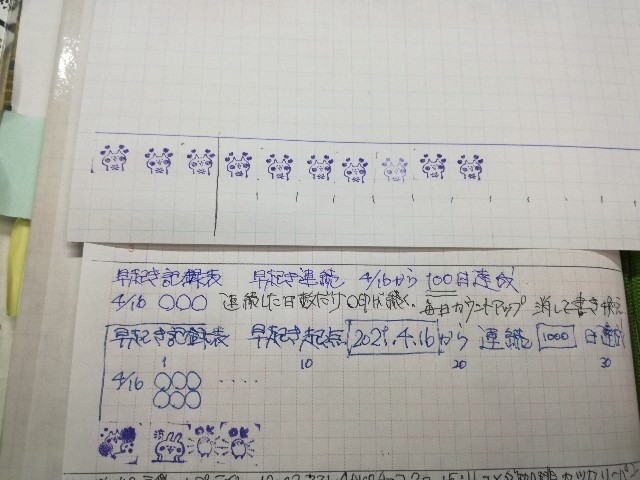 早起き記録表 早起き連続 4/16から100日達成
4/16 ○○○ 連続した日数だけ○印が続く。毎日カウントアップ 消して書き換え
早起き記録表 早起き起点 2021.4.16から 連続 1000 日達成
1 10 20 30
4/16 ○○○ ‥‥
○○○